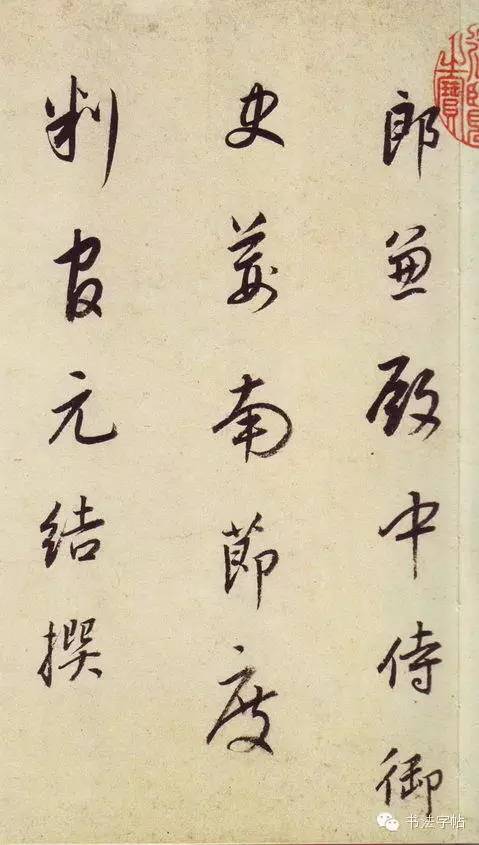 郎兼殿中侍御
史荊南節度
判官元結撰
书法字帖